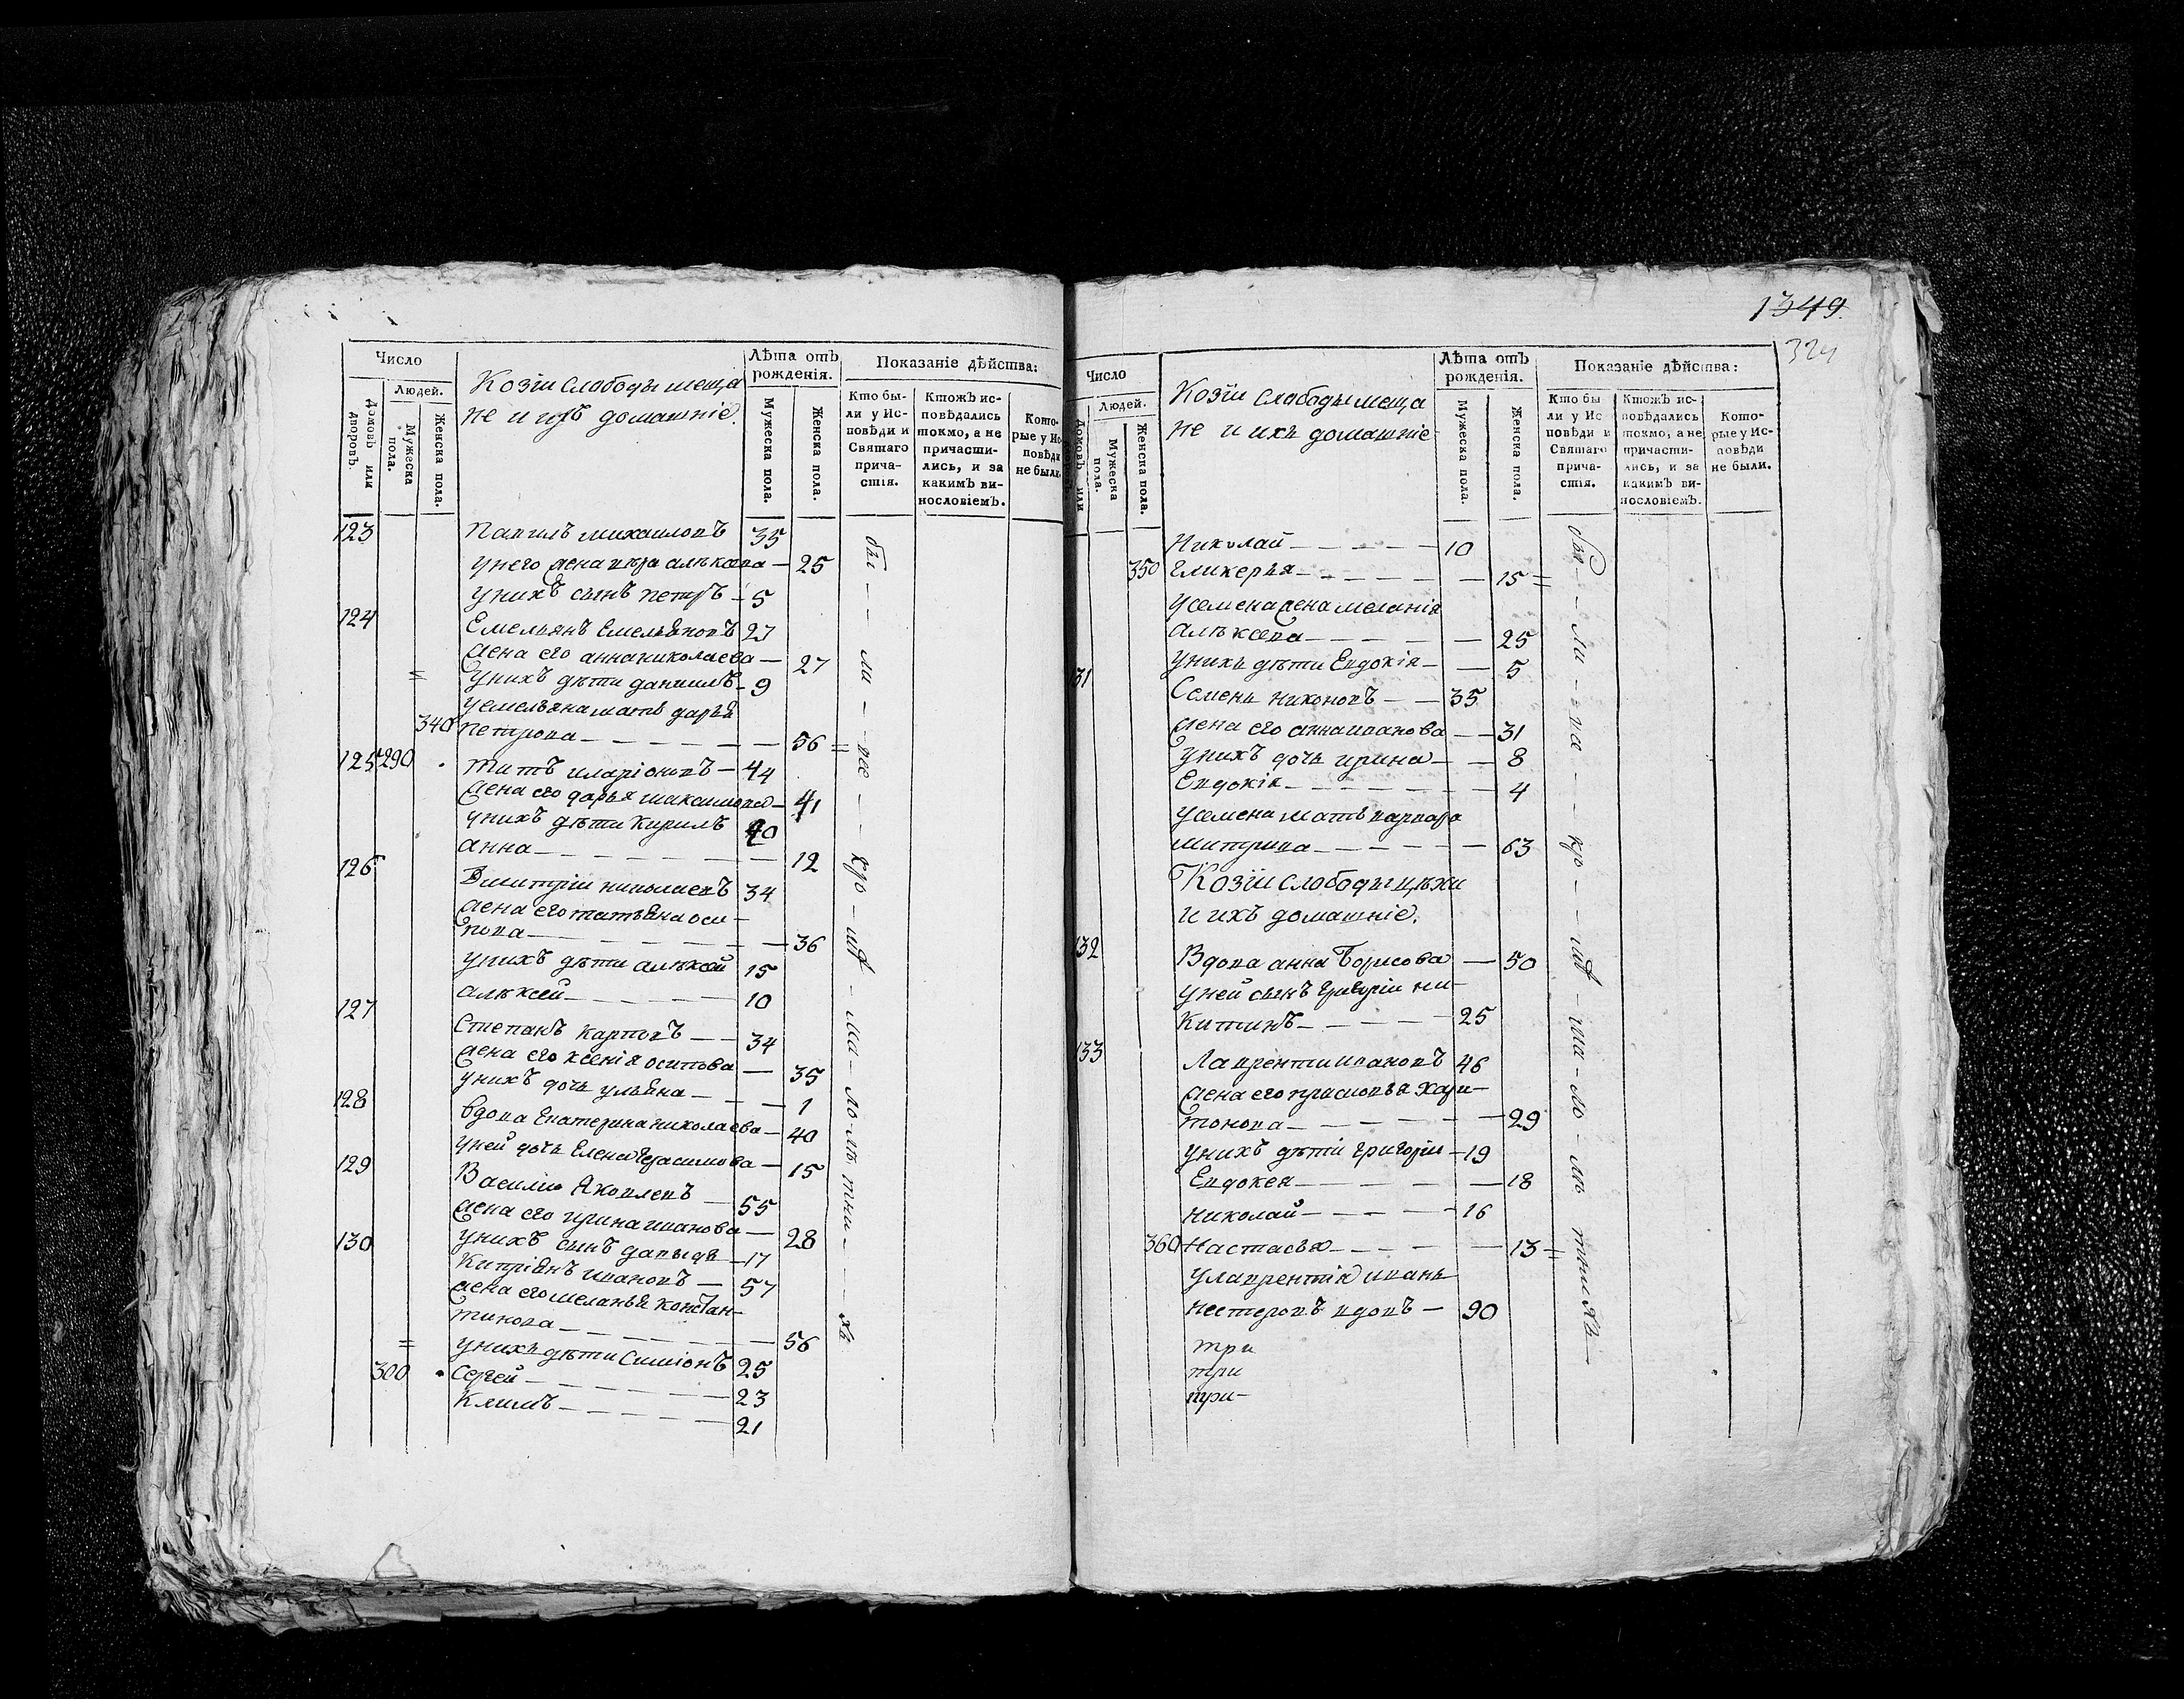 Число
Людей.
Домовъ или дворовъ.
Мужеска пола.
Женска пола.
Козїи слободы меща
не и ихъ домашніе.
Лѣта отъ рожденія.
Мужеска пола.
Женска пола.
Показаніе дѣйства:
Кто бы-
ли у Ис-
повѣди и
Святаго
прича-
стія.
Ктожъ ис-
повѣдались
токмо, а не
причасти-
лись, и за
какимъ ви-
нословіемъ.
Кото-
рые у Ис-
повѣди
не были.
123 Павилъ михаиловъ 35
унего жена вѣра алѣксева — 25
унихъ сынъ петръ — 5
124 Емельянъ Емельяновъ 27
жена его анна николаева — 27
унихъ дѣти даниилъ — 9
уемельяна мать дарья
340 петрова — 56 =
125 290 титъ иларіоновъ — 44
жена его дарья максимова — 41
унихъ дѣти кирилъ 20
анна — 12
126 Дмитріи николаевъ 34
жена его татьяна оси-
пова — 36
унихъ дѣти алѣксѣй 15
алѣксѣй — 10
127 Степанъ карповъ — 34
жена его ксенія осипова — 35
унихъ дочь ульяна — 1
128 вдова Екатерина николаева — 40
уней дочь Елена Герасимова — 15
129 Василіи Яковлевъ — 55
жена его ирина иванова — 28
унихъ сынъ давыдъ — 17
130 Кипріянъ ивановъ — 57
жена его меланья констан-
тинова — 56
= унихъ дѣти Симіонъ 25
300 Сергей — 23
Климъ — 21
бы — ли — все — кро — мѣ — ма — ло — лѣ тни — хъ
1349.
324
Число
Людей.
Домовъ или
Мужеска пола.
Женска пола.
Козїи слободы меща
не и ихъ домашніе
Лѣта отъ рожденія.
Мужеска пола.
Женска пола.
Показаніе дѣйства:
Кто бы
ли у Ис
повѣди и
Святаго
прича-
стія.
Ктожъ ис-
повѣдались
токмо, а не
причасти-
лись, и за
какимъ ви-
нословіемъ.
Кото-
рые у Ис-
повѣди
не были.
Николай — 10
350 Гликерья — 15 =
усемена жена меланія
алѣксева — 25
унихъ дѣти Евдокія — 5
31 Семенъ никоновъ — 35
жена его анна иванова — 31
унихъ дочь ирина — 8
Евдокія — 4
усемена мать варвара
митрива — 63
Козїи слободы цѣхи
и ихъ домашніе.
132 Вдова анна Борисова — 50
уней сынъ григоріи ни-
китинъ — 25
133 Лаврентии ивановъ 46
жена его прасковья хари-
тонова — 29
унихъ дѣти григоріи — 19
Евдокея — 18
николай — 16
360 Настасья — 13 =
улаврентія иванъ
нестеровъ вдовъ — 90
три
три
три —